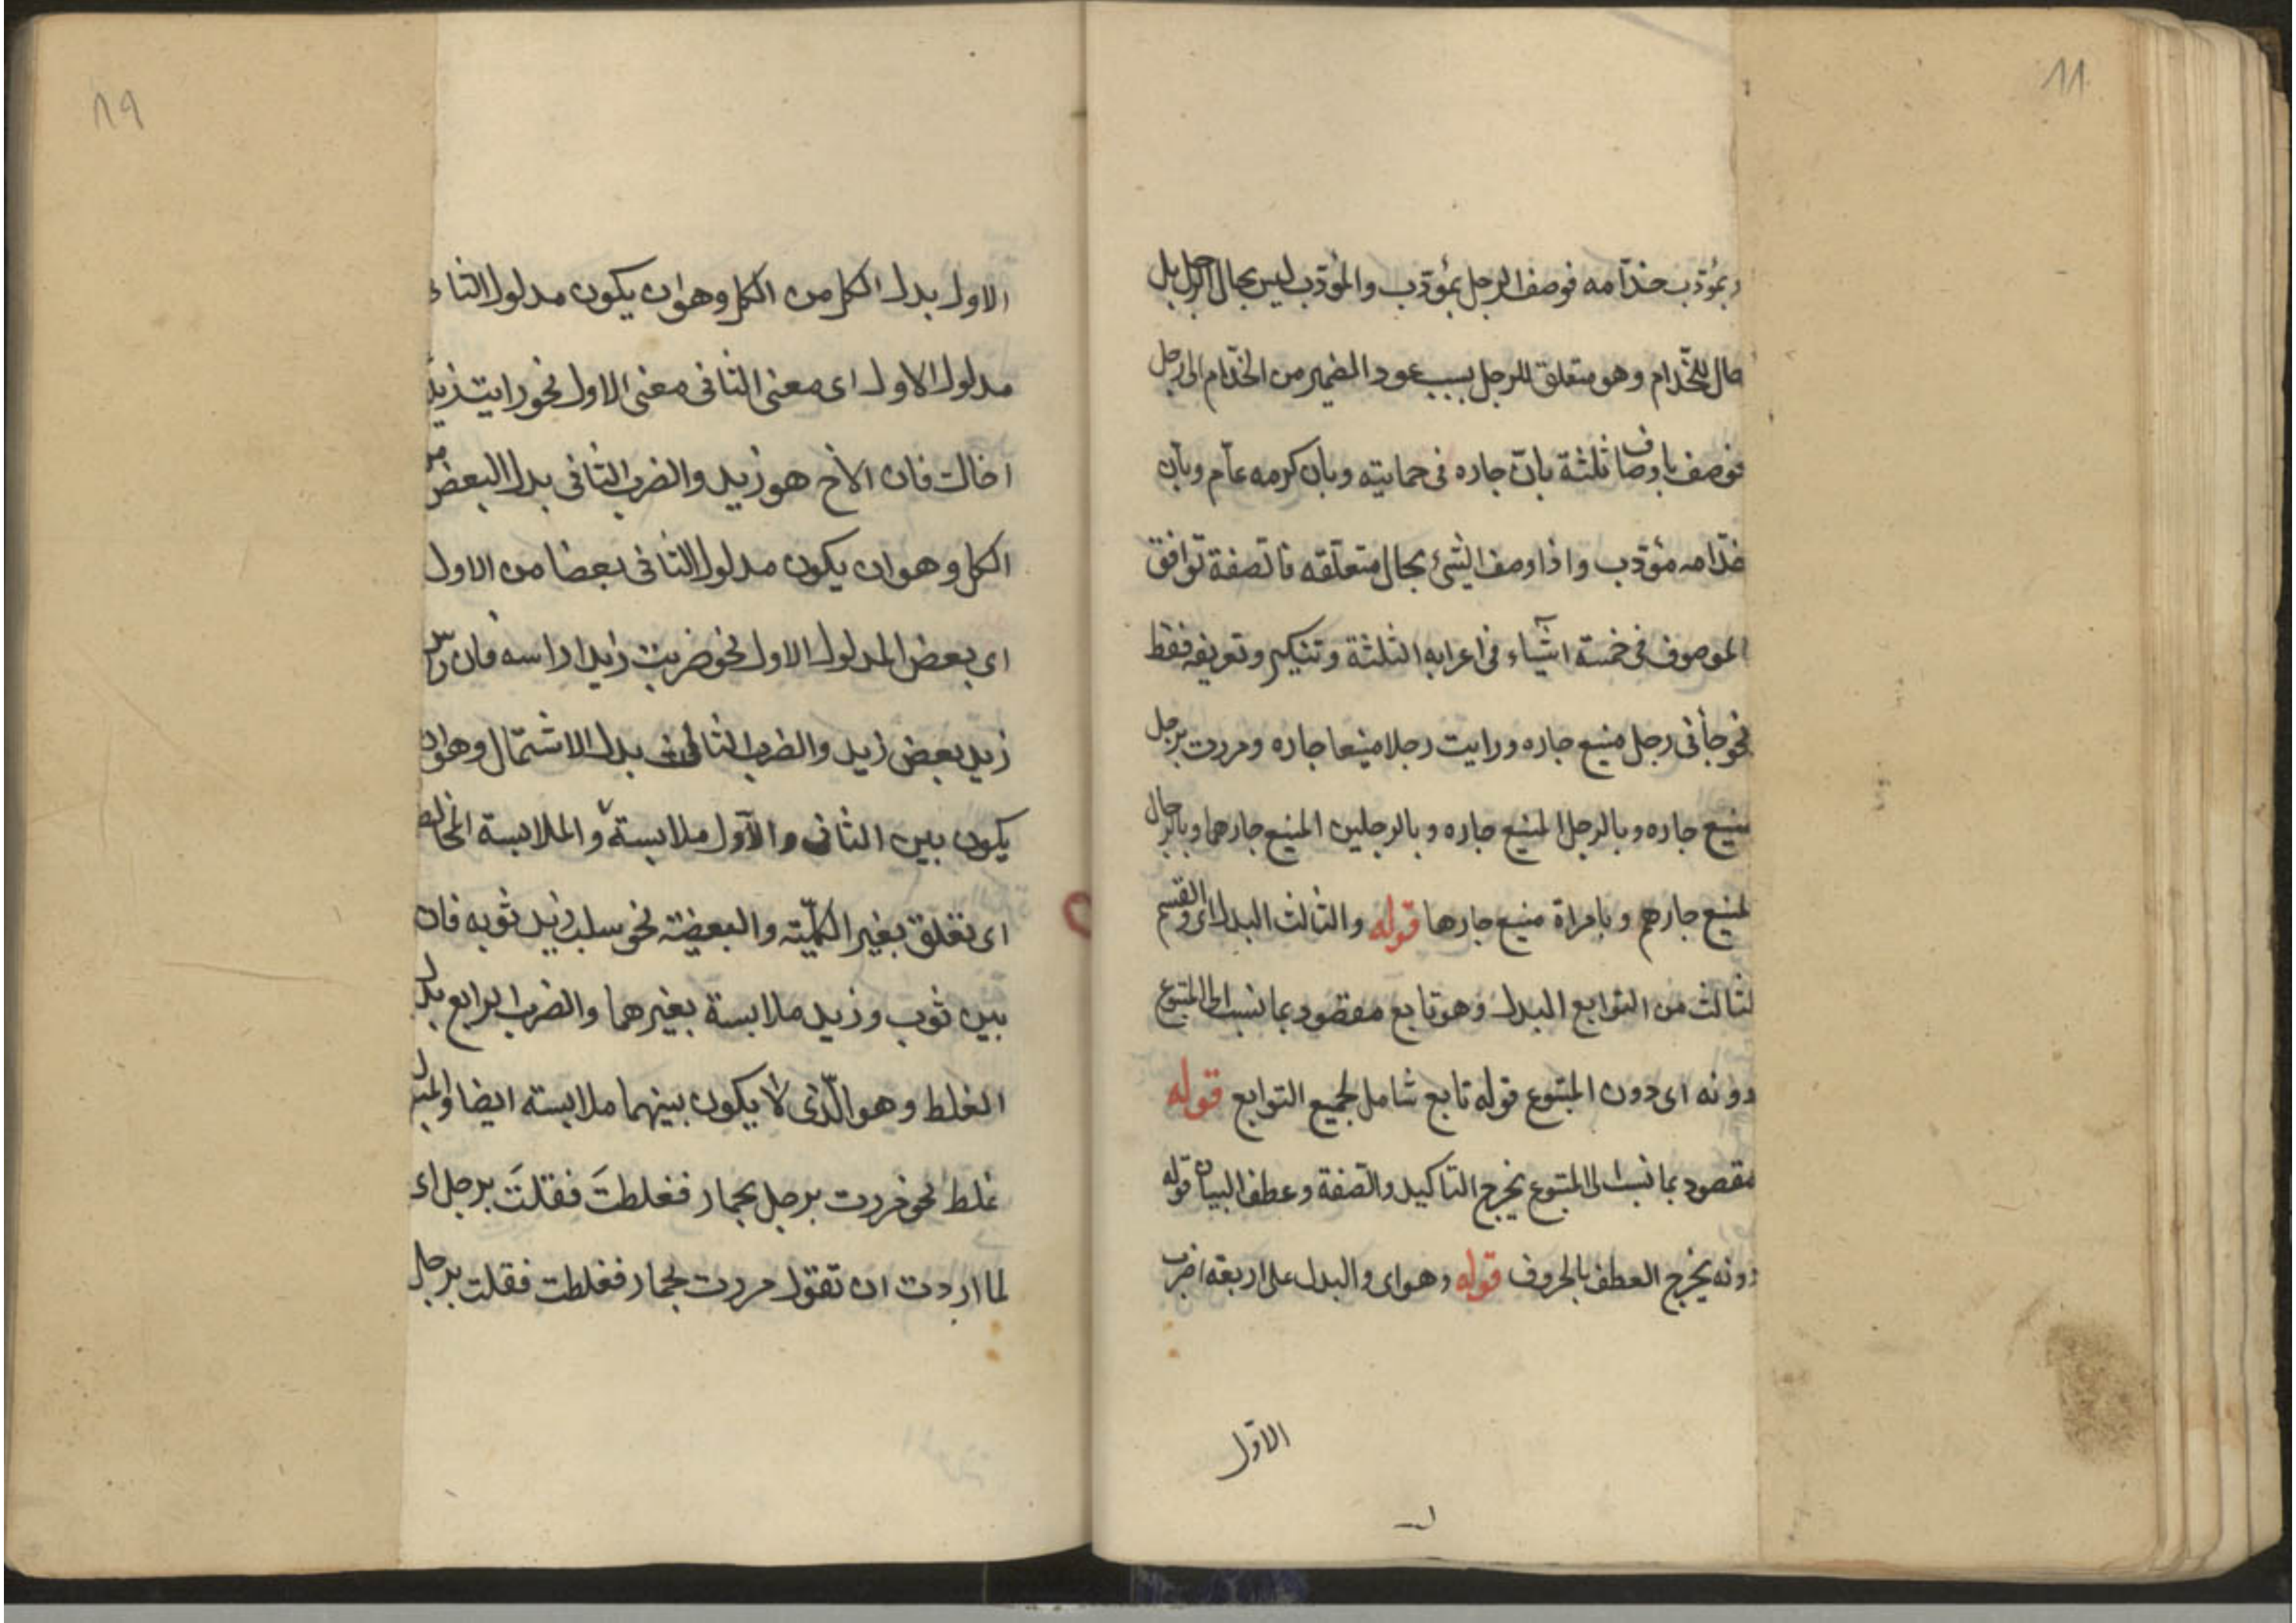 ١١
وبمؤدّب خدّامه فوصف الرجل بمؤدّب والمؤدّب ليس بحال الرجل بل
حال للخدّام وهو متعلق للرجل بسبب عود الضمير من الخدّام الى الرجل
فوصف باوصاف ثلثة بانّ جاره فى حمايته وبان كرمه عآم وبان
خدّامه مؤدّب واذا وصف الشئ بحال متعلّقه فالصّفة توافق
الموصوف فى خمسة اشيآء فى اعرابه الثلثة وتنكيره وتعريفه فقط
نحو جأنى رجل منيع جاره ورايت رجلا منيعا جاره ومررت برجل
منيع جاره وبالرجل المنيع جاره وبالرجلين المنيع جارهما وبالرجال
المنيع جارهم وبامراة منيع جارها قوله والثالث البدل اى والقسم
الثالث من التوابع البدل وهو تابع مقصود بما نسب الى المتبوع
دونه اى دون المتبوع قوله تابع شامل لجميع التوابع قوله
مقصود بما نسب الى المتبوع يخرج التاكيد والصّفة وعطف البيان قوله
دونه يخرج العطف بالحروف قوله وهو اى والبدل على اربعة اضرب
الاوّل
١٩
الاول بدل الكل من الكل وهو ان يكون مدلول الثانى
مدلول الاول اى معنى الثانى معنى الاول نحو رايت زيدا
اخاك فان الاخ هو زيد والضرب الثانى بدل البعض من
الكل وهو ان يكون مدلول الثانى بعضا من الاول
اى بعض المدلول الاول نحو ضربت زيدا راسه فان راس
زيد بعض زيد والضرب الثالث بدل الاشتمال وهو ان
يكون بين الثانى والآول ملابسة والملابسة المخالطة
اى تعلق بغير الكلّيّة والبعضيّة نحو سلب زيد ثوبه فان
بين ثوب وزيد ملابسة بغيرهما والضرب الرابع بدل
الغلط وهو الّذى لا يكون بينهما ملابسة ايضا والمبدل
غلط نحو مررت برجل بحمار فغلطتَ فقلتَ برجل اى
لما اردت ان تقول مررت بحمار فغلطت فقلت برجل